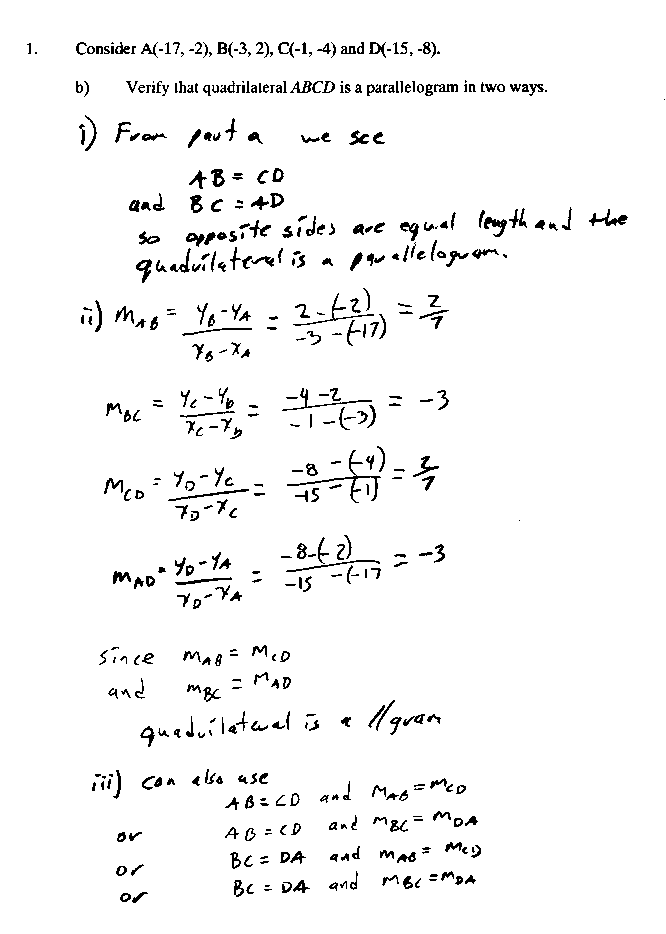 1. Consider A(-17, -2), B(-3, 2), C(-1, -4) and D(-15, -8).
b) Verify that quadrilateral ABCD is a parallelogram in two ways.
i) From part a we see
AB = CD
and BC = AD
so opposite sides are equal length and the
quadrilateral is a parallelogram.
ii) m_AB = (y_B - y_A)/(x_B - x_A) = (2 - (-2))/(-3 - (-17)) = 2/7
m_BC = (y_C - y_b)/(x_C - x_b) = (-4 - 2)/(-1 - (-3)) = -3
m_CD = (y_D - y_C)/(x_D - x_C) = (-8 - (-4))/(-15 - (-1)) = 2/7
m_AD = (y_D - y_A)/(x_D - x_A) = (-8 - (-2))/(-15 - (-17 = -3
since m_AB = m_CD
and m_BC = m_AD
quadrilateral is a //gram
iii) can also use
AB = CD and m_AB = m_CD
or AB = CD and m_BC = m_DA
or BC = DA and m_AB = m_CD
or BC = DA and m_BC = m_DA